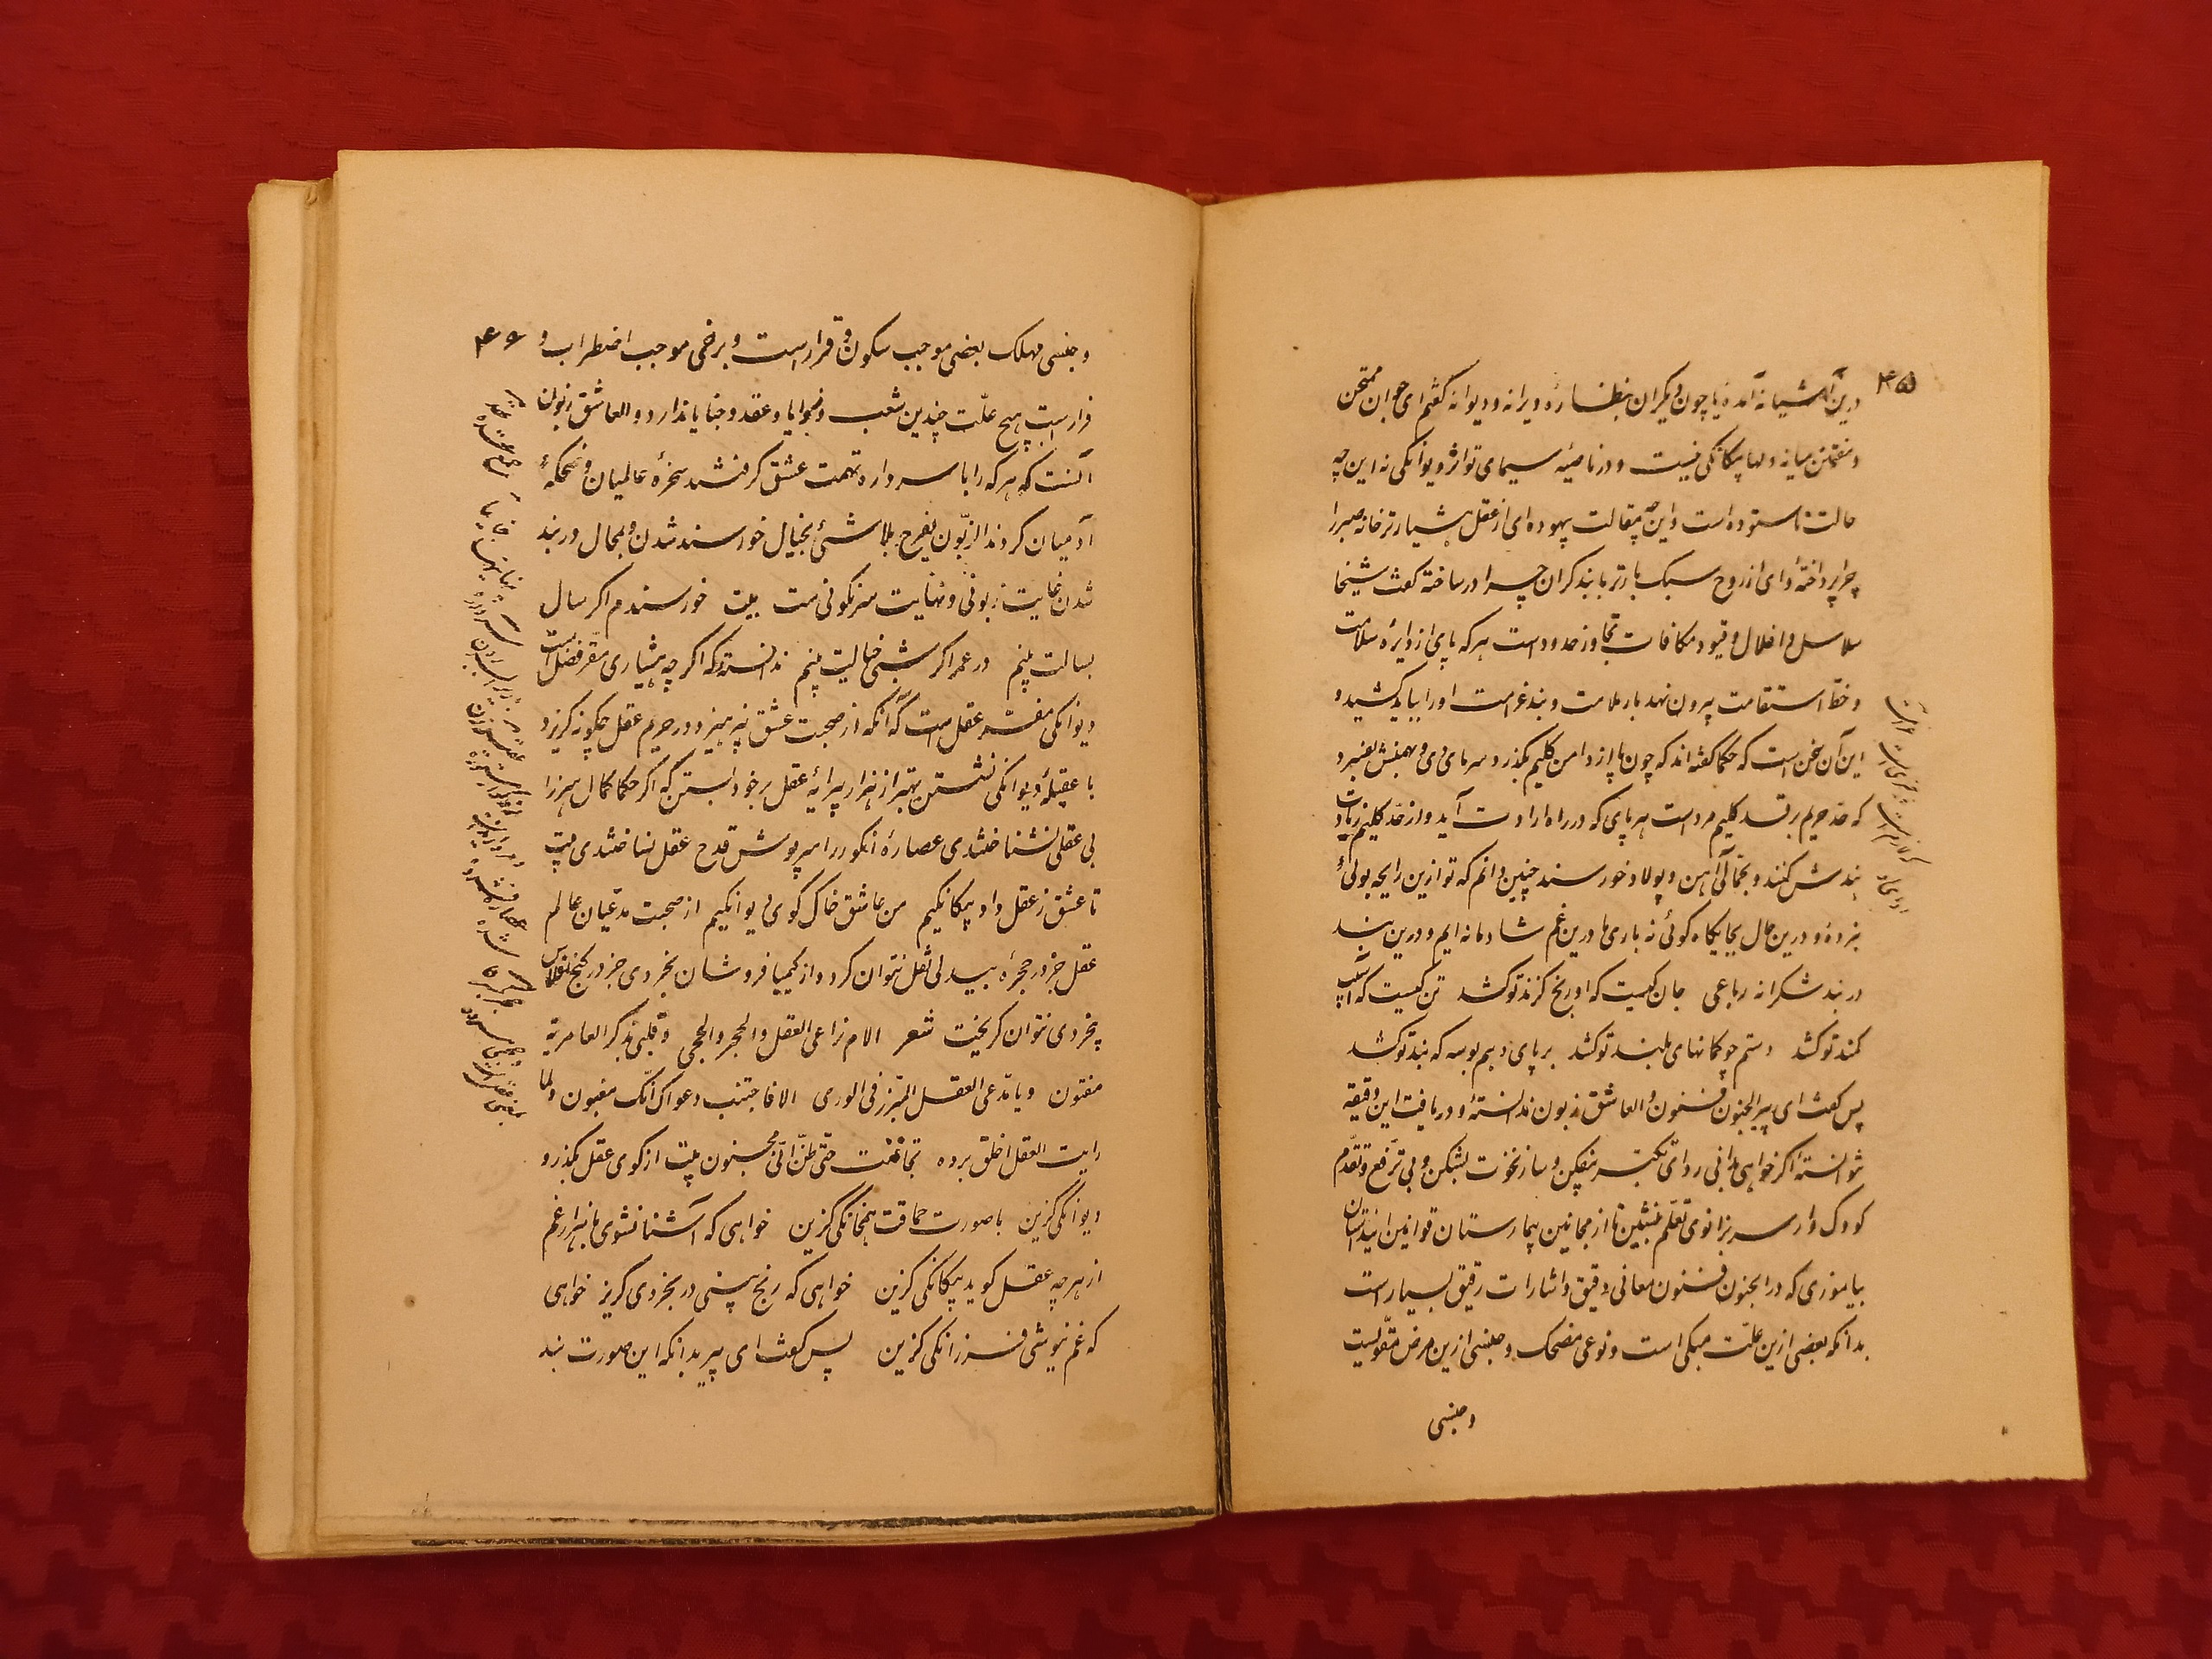 ۴۵
درین آشیانه آمدهٔ یا چون دیگران بنظارهٔ ویرانه و دیوانه گفتم ای جوان ممتحن
و مفتتن میانه دلها بیگانگی نیست و در ناصیهٔ سیمای تو اثر دیوانگی نه این چه
حالت ناستوده است و این چه مقالت بیهوده ای از عقل هشیارتر خانه صبر را
چرا پرداختهٔ و ای از روح سبک بارتر با بند گران چرا در ساختهٔ گفت شیخا
سلاسل و اغلال و قیود مکافات تجاوز حدودست هر که پای از دایرهٔ سلامت
و خط استقامت بیرون نهد بار ملامت و بند غرامت او را بباید کشید و
این آن سخن است که حکما گفته‌اند که چون پا از دامن گلیم بگذرد سرمای دی و بهمنش بفسرد
که حد حریم هر قد گلیم مردست هر پای که در راه ارادت آید و از حد گلیم زیادت
بندش کنند و بخمالی آهن و پولاد خورسند چنین دانم که تو ازین رایحه بوئی
نبردهٔ و درین حال بجایگاه گوئی نه باری ما درین غم شادمانه ایم و درین بند
در بند شکرانه رباعی جان کیست که او رنج گزند تو کشد تن کیست که آسیب
کمند تو کشد دستم چو کمانهای بلند تو کشد بر پای دهم بوسه که بند تو کشد
پس گفت ای پیر الجنون فنون و العاشق زبون ندانستهٔ و دریافت این دقیقه
نتوانستهٔ اگر خواهی بدانی ردای تکبر بیفکن و ساز نخوت بشکن و بی ترفع و تقدم
کودک وار سر بزانوی تعلم بنشین تا از مجانین بیمارستان قوانین این داستان
بیاموزی که در الجنون فنون معانی دقیق و اشارات رقیق بسیار است
بدانکه بعضی ازین علت مبکی است و نوعی مضحک و جنسی ازین مرض مقولیست
و جنسی
۴۶
و جنسی مهلک بعضی موجب سکون و قرارست و برخی موجب اضطراب و
فرارست هیچ علت چندین شعب و زوایا و عقد و خبایا ندارد و العاشق زبون
آنست که هر که را با سر دار تهمت عشق گرفتند سخرهٔ عالمیان و ضحکهٔ
آدمیان کردند الزبون یفرح بلا شئ بخیال خورسند شدن و بمحال در بند
شدن غایت زبونی و نهایت سرنگونی ست بیت خورسندم اگر سال
بسالت بینم در عمر اگر شبی خیالت بینم ندانستهٔ که اگر چه هشیاری مقر فضل است
دیوانگی مفر عقل است که آنکه از صحبت عشق نپرهیزد در حریم عقل چگونه گریزد
با عقیلهٔ دیوانگی نشستن بهتر از هزار پیرایهٔ عقل بر خود بستن که اگر حکما کمال هنر را
بی عقلی نشناختندی عصارهٔ انگور را سرپوش قدح عقل نساختندی بیت
تا عشق ز عقل داد بیگانگیم من عاشق خاک کوی دیوانگیم از صحبت مدعیان عالم
عقل جز در حجرهٔ بیدلی نقل نتوان کرد و از کیمیا فروشان بخردی جز در کنج افلاس
بیخردی نتوان گریخت شعر الام زاعی العقل و الحجر و الحجی و قلبی بذکر العامریة
مفتون و یا مدعی العقل المبرز فی الوری الا فاجتنب دعواک انک مغبون و لما
رایت العقل اخلق برده تجاننت حتی ظن انی مجنون بیت از کوی عقل بگذر و
دیوانگی گزین با صورت حماقت همخانگی گزین خواهی که آشنا نشوی با هزار غم
از هر چه عقل گوید بیگانگی گزین خواهی که رنج نبینی در بیخردی گریز خواهی
که غم نیوشی فرزانگی گزین پس گفت ای پیر بدانکه این صورت بند